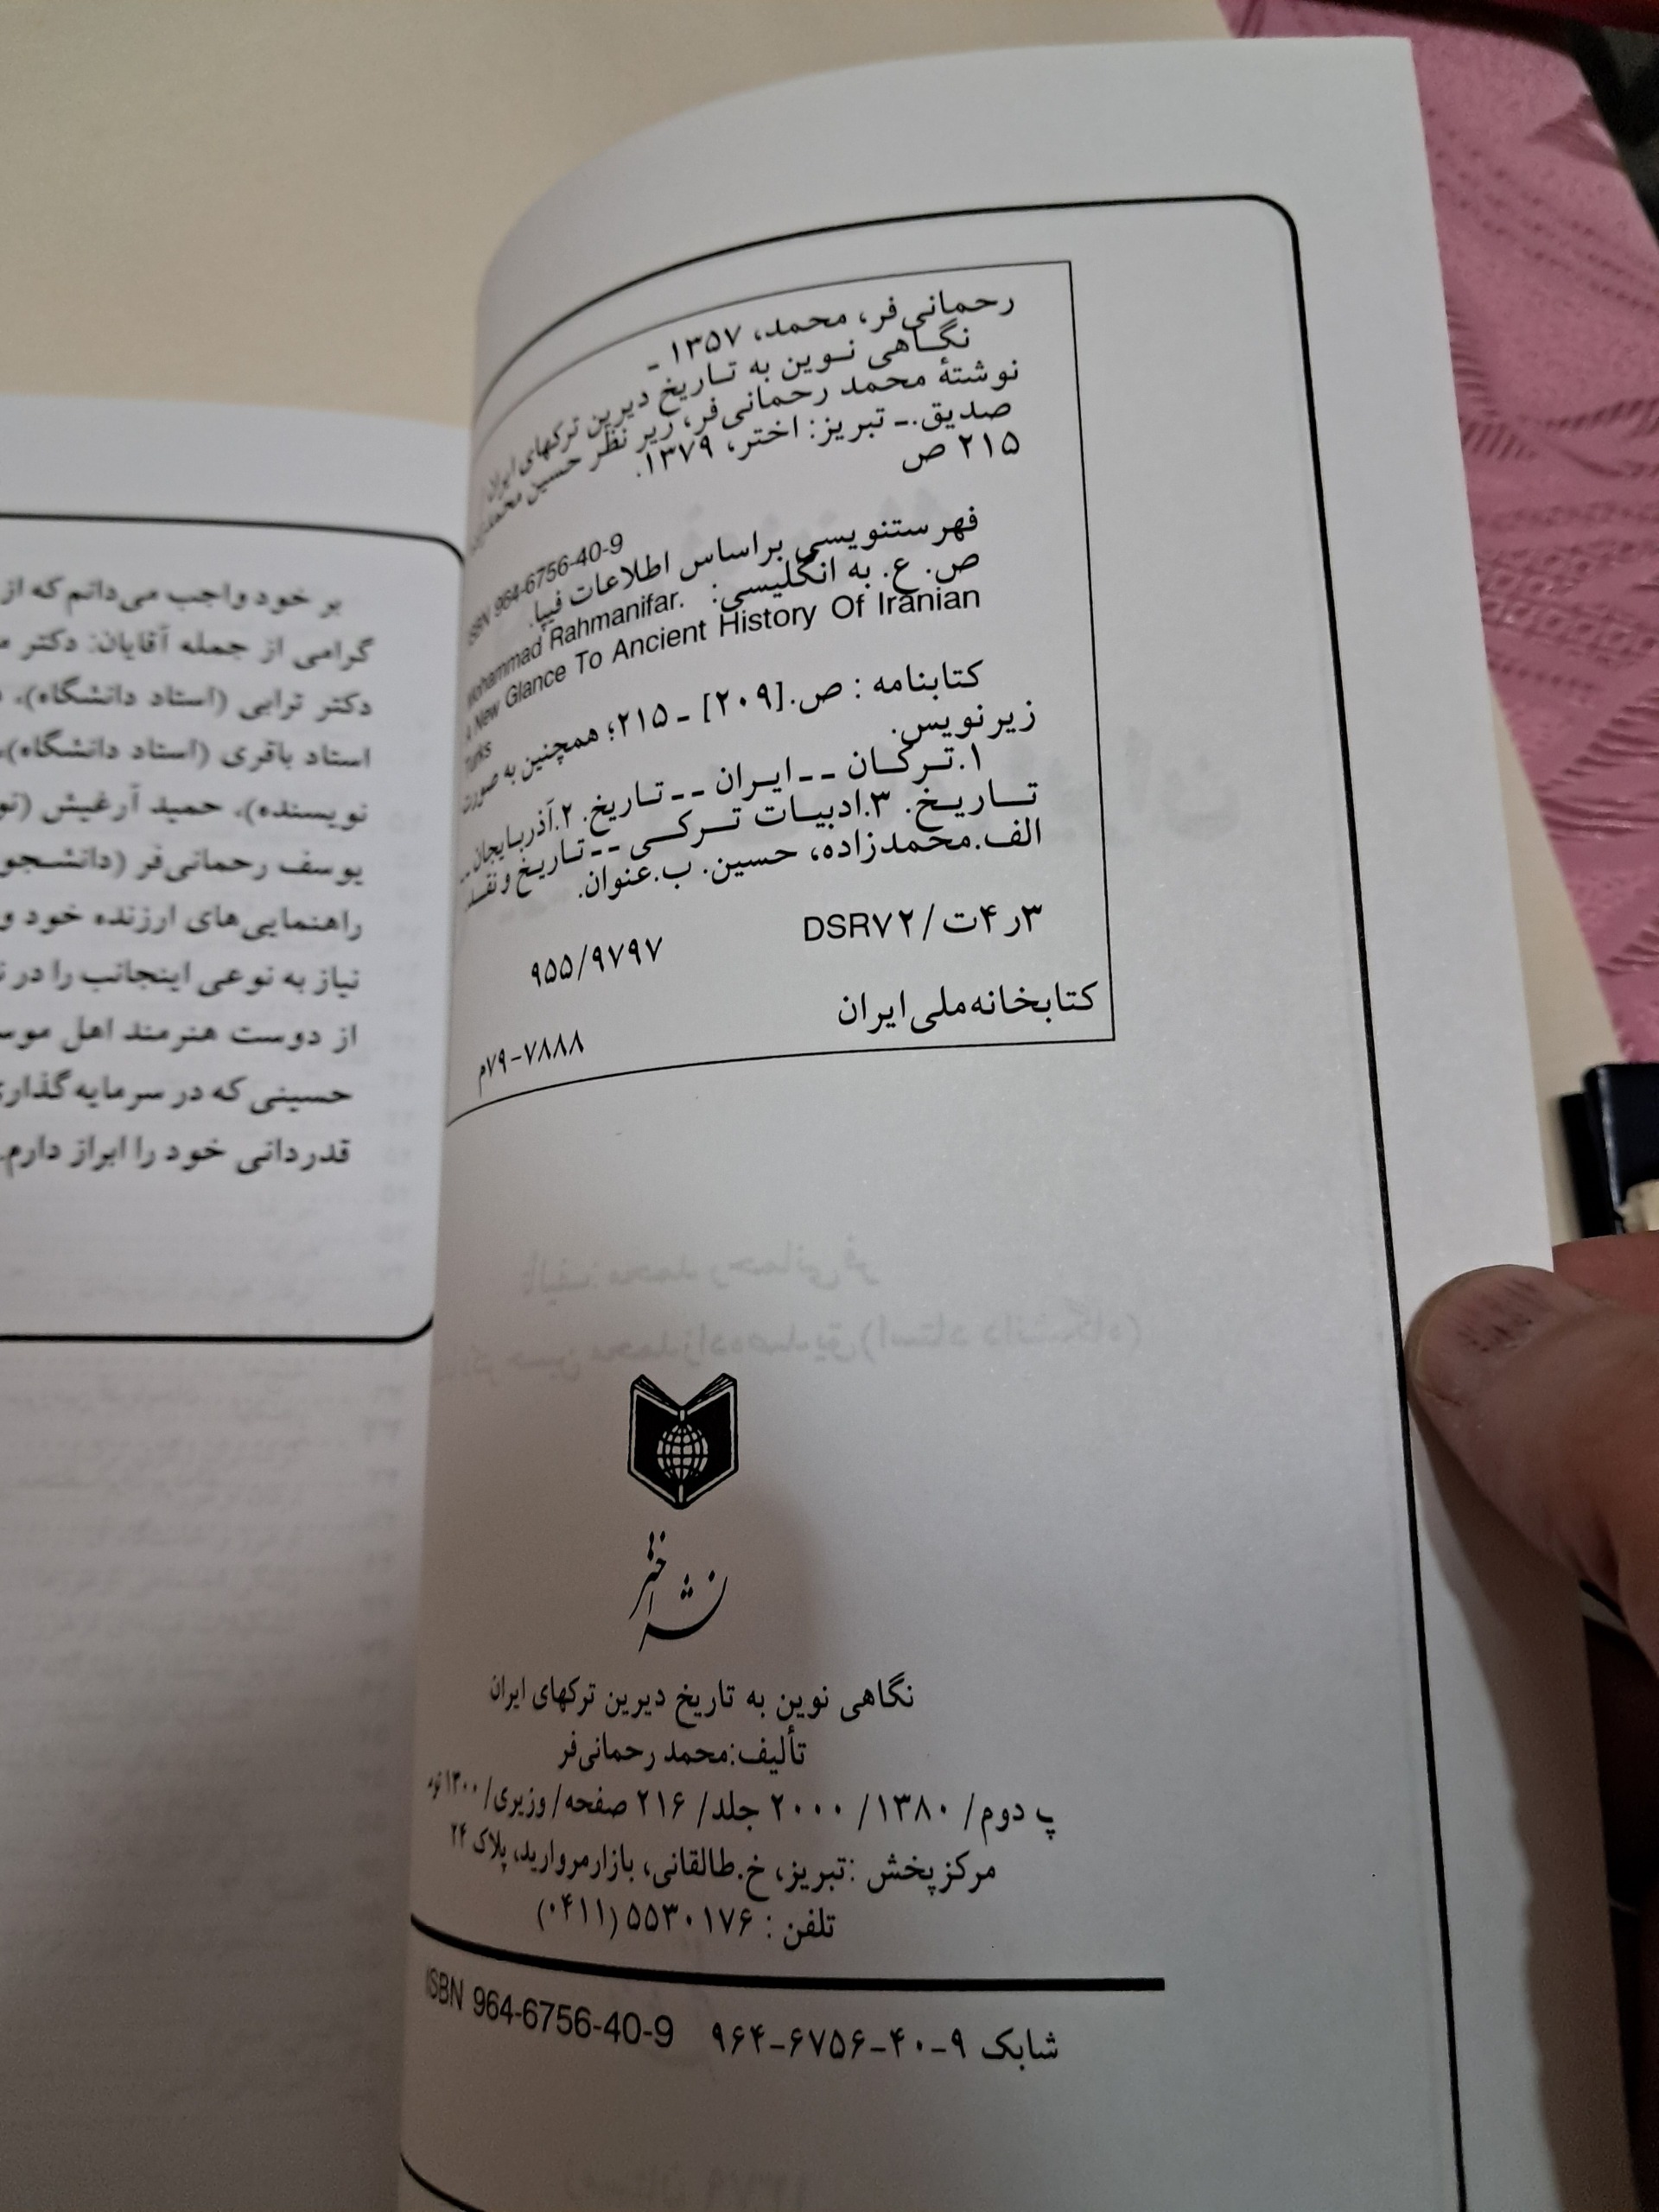 رحمانی‌فر، محمد، ۱۳۵۷ -
نگاهی نوین به تاریخ دیرین ترکهای ایران
نوشتهٔ محمد رحمانی‌فر، زیر نظر حسین محمدزاده
صدیق.- تبریز: اختر، ۱۳۷۹.
۲۱۵ ص
ISBN 964-6756-40-9
فهرستنویسی براساس اطلاعات فیپا.
ص. ع. به انگلیسی:
Mohammad Rahmanifar.
A New Glance To Ancient History Of Iranian
Turks
کتابنامه : ص.[۲۰۹] - ۲۱۵؛ همچنین به صورت
زیرنویس.
۱.ترکان -- ایران -- تاریخ. ۲.آذربایجان --
تاریخ. ۳.ادبیات ترکی -- تاریخ و نقد.
الف.محمدزاده، حسین. ب.عنوان.
۳ر۴ت/DSR۷۲
۹۵۵/۹۷۹۷
کتابخانه‌ملی‌ایران
م۷۹-۷۸۸۸
نشر اختر
نگاهی نوین به تاریخ دیرین ترکهای ایران
تألیف:محمد رحمانی‌فر
پ دوم/ ۱۳۸۰/ ۲۰۰۰ جلد/ ۲۱۶ صفحه/ وزیری/
مرکزپخش :تبریز، خ.طالقانی، بازارمروارید، پلاک ۲۴
تلفن : ۵۵۳۰۱۷۶(۰۴۱۱)
شابک ۹-۴۰-۶۷۵۶-۹۶۴ ISBN 964-6756-40-9
بر خود واجب می‌دانم که از
گرامی از جمله آقایان: دکتر
دکتر ترابی (استاد دانشگاه)،
استاد باقری (استاد دانشگاه)،
نویسنده)، حمید آرغیش
یوسف رحمانی‌فر
راهنمایی‌های ارزنده خود و
نیاز به نوعی اینجانب را در
از دوست هنرمند اهل
حسینی که در
قدردانی خود را ابراز دارم.